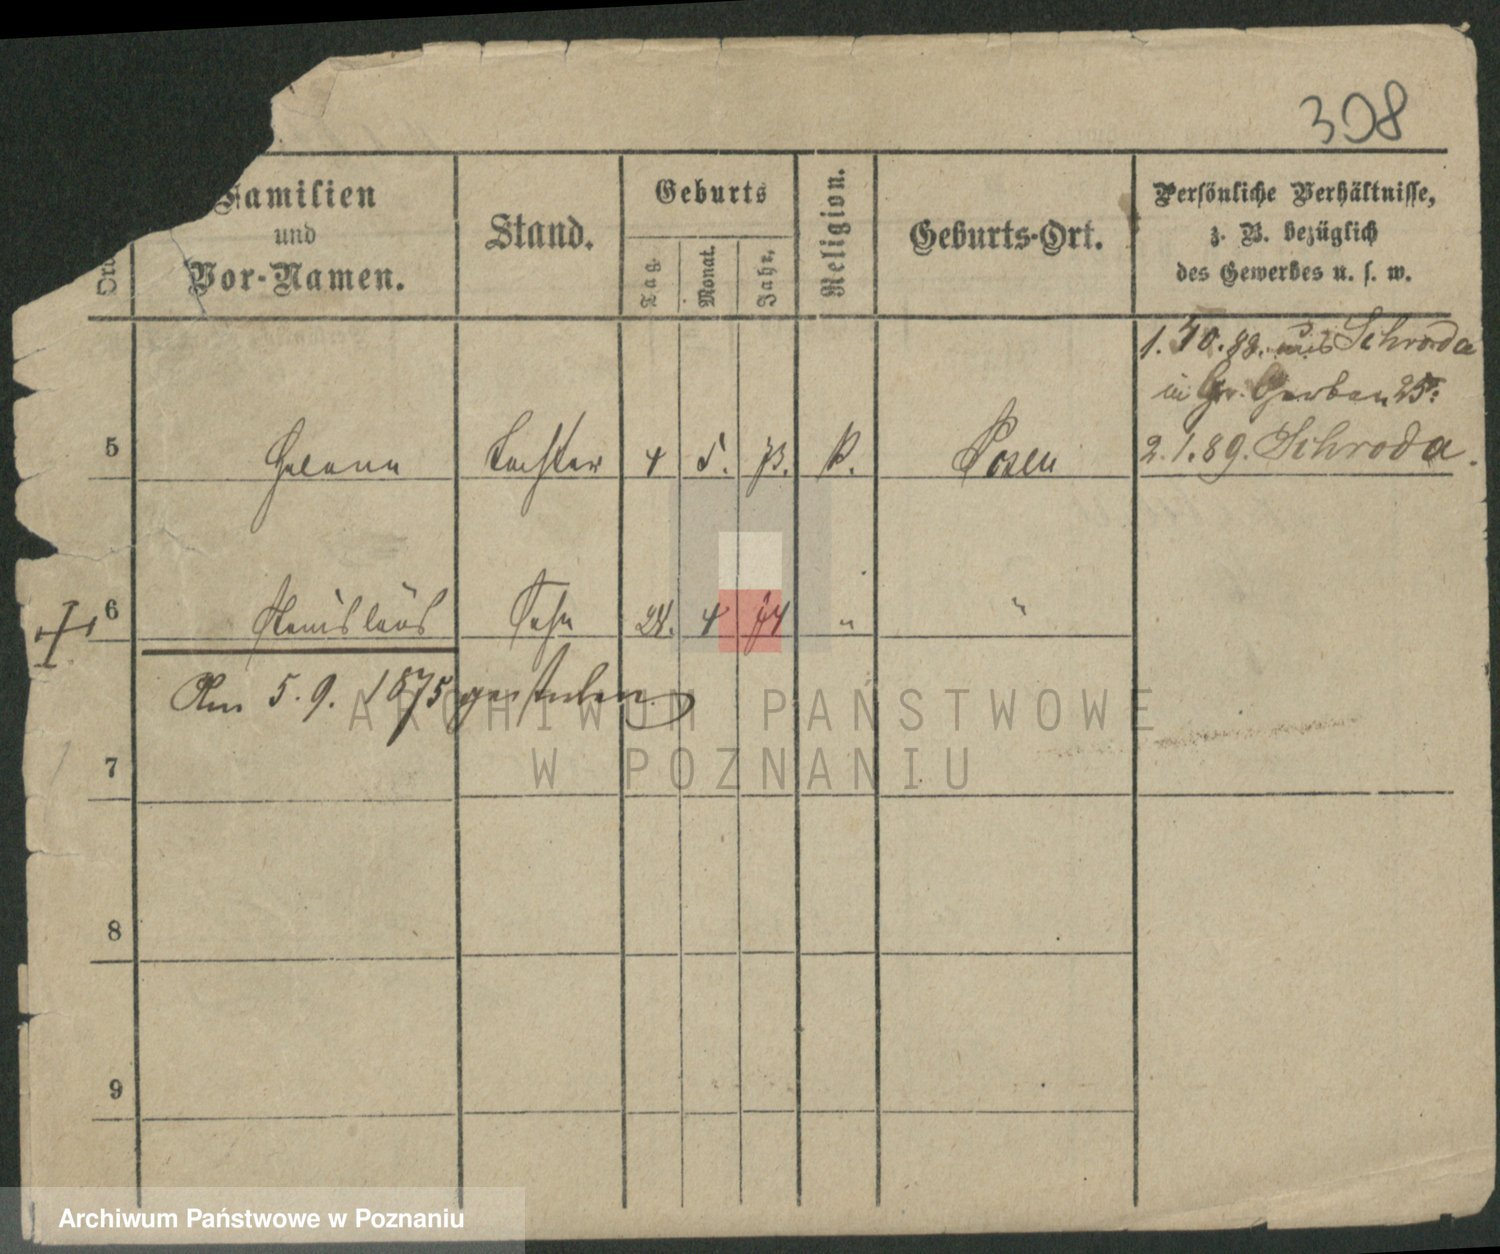 308
Familien
und
Vor-Namen.
Stand.
Geburts
Tag.
Monat.
Jahr.
Religion.
Geburts-Ort.
Persönliche Verhältnisse,
z. B. bezüglich
des Gewerbes u. s. w.
1. 10. 88. aus Schroda
in Gr. Gerberstr 25
2. 1. 89. Schroda.
5 Helena Tochter 4 5. 73. K. Posen
6 Stanislaus Sohn 28. 4 74 " "
Am 5. 9. 1875 gestorben
7
8
9
ARCHIWUM PAŃSTWOWE
W POZNANIU
Archiwum Państwowe w Poznaniu